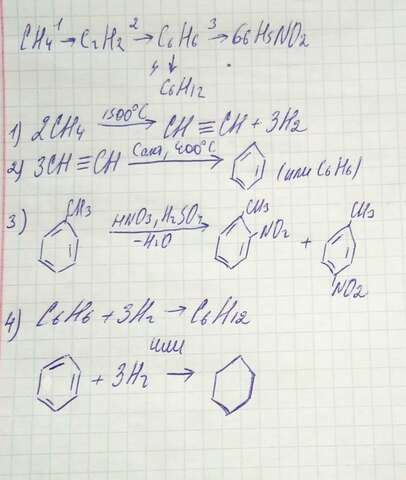 CH4 →1 C2H2 →2 C6H6 →3 C6H5NO2
4 ↓
C6H12
1) 2CH4 1500°C → CH≡CH + 3H2
2) 3CH≡CH Cакт, 400°C → (или C6H6)
3) CH3 HNO3, H2SO2 → -H2O CH3 NO2 + CH3 NO2
4) C6H6 + 3H2 → C6H12
или
+ 3H2 →